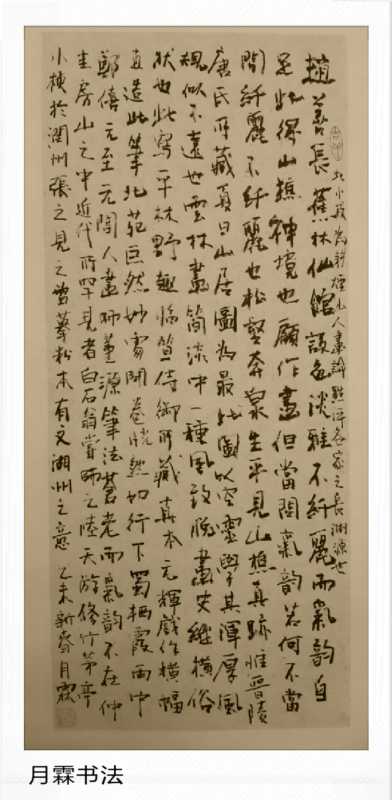 趙善長蕉林仙館設色淡雅不纖麗而氣韻自
足此得山樵神境也顧作畫但當問氣韻若何不當
問纖麗不纖麗也松壑奔泉生平見山樵真跡惟晉陵
唐氏所藏夏日山居圖為最此圖以空靈學其渾厚風
規似不遠也雲林畫簡淡中一種風致脫畫史縱橫俗
狀也此寫平林野趣臨笪侍御所藏真本元輝戲作橫幅
直造此筆北苑巨然妙處開卷恍然如行下蜀棲霞雨中
鄭僖元至元間人畫師董源筆法蒼老而氣韻不在仲
圭房山之中近代所罕見者白石翁嘗師之陸天游修竹茅亭
小楨於潤州張之見之曾摹粉本有文湖州之意 乙未新春月霖
此小段為耕煙山人畫論點評各家之長淵源也
月霖书法